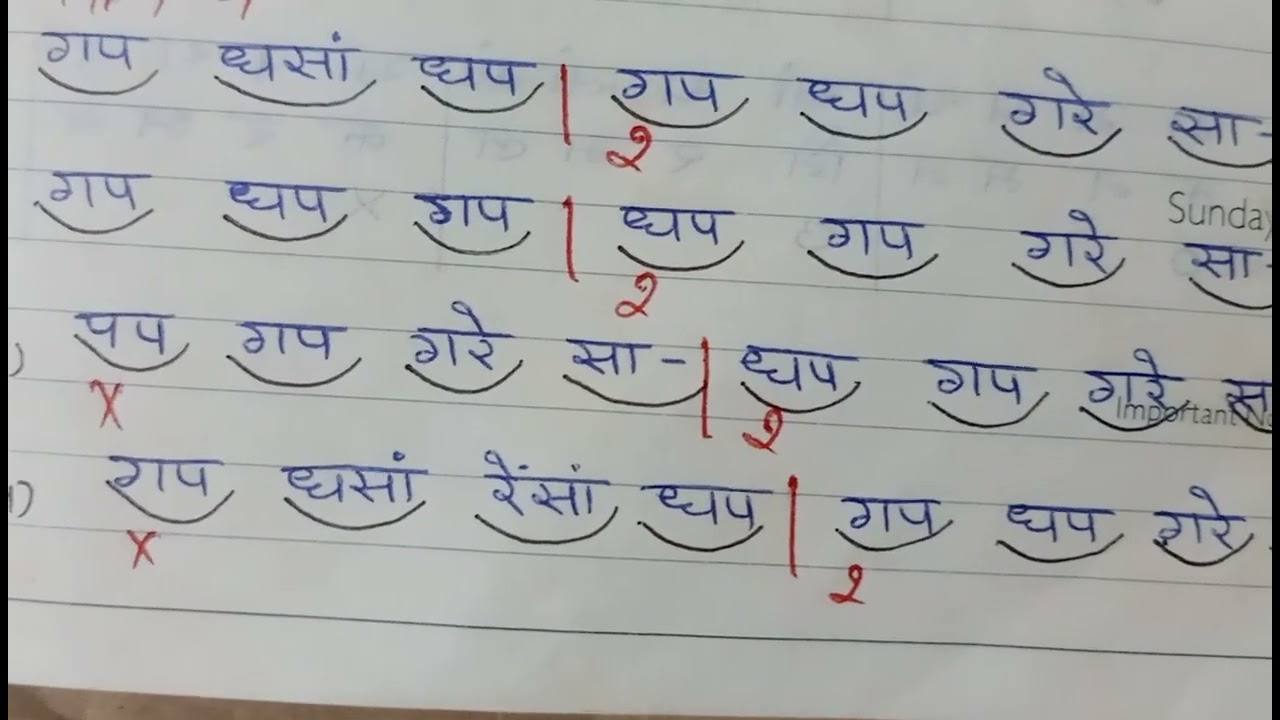 गप धसां धप | गप धप गरे सा-
२
Sunday
गप धप गप | धप गप गरे सा-
२
) पप गप गरे सा- | धप गप गरे
X २
Important
) गप धसां रेंसां धप | गप धप गरे
X २